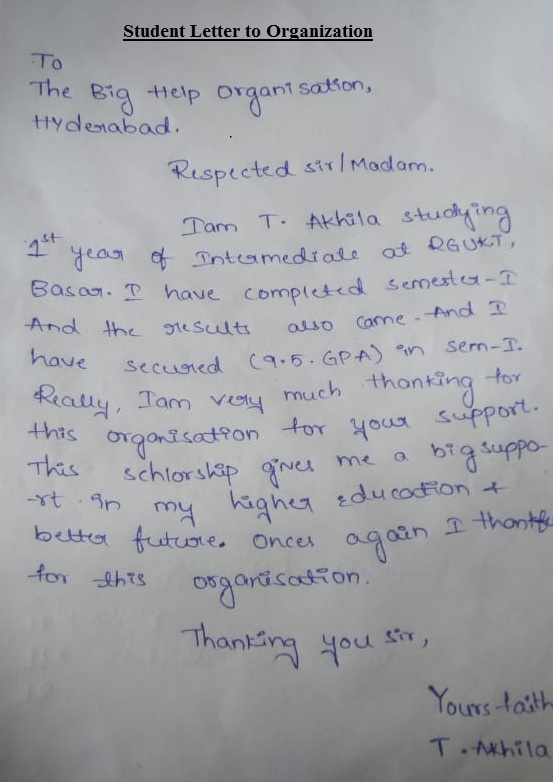 Student Letter to Organization
To
The Big Help Organisation,
Hyderabad.
Respected sir/Madam.
Iam T. Akhila studying
1st year of Intermediate at RGUKT,
Basar. I have completed semester-I
And the results also came. And I
have secured (9.5. GPA) in sem-I.
Really, Iam very much thanking for
this organisation for your support.
This schlorship gives me a big suppo-
-rt in my higher education &
better future. Onces again I thankfu
for this organisation.
Thanking you sir,
Yours faith
T. Akhila